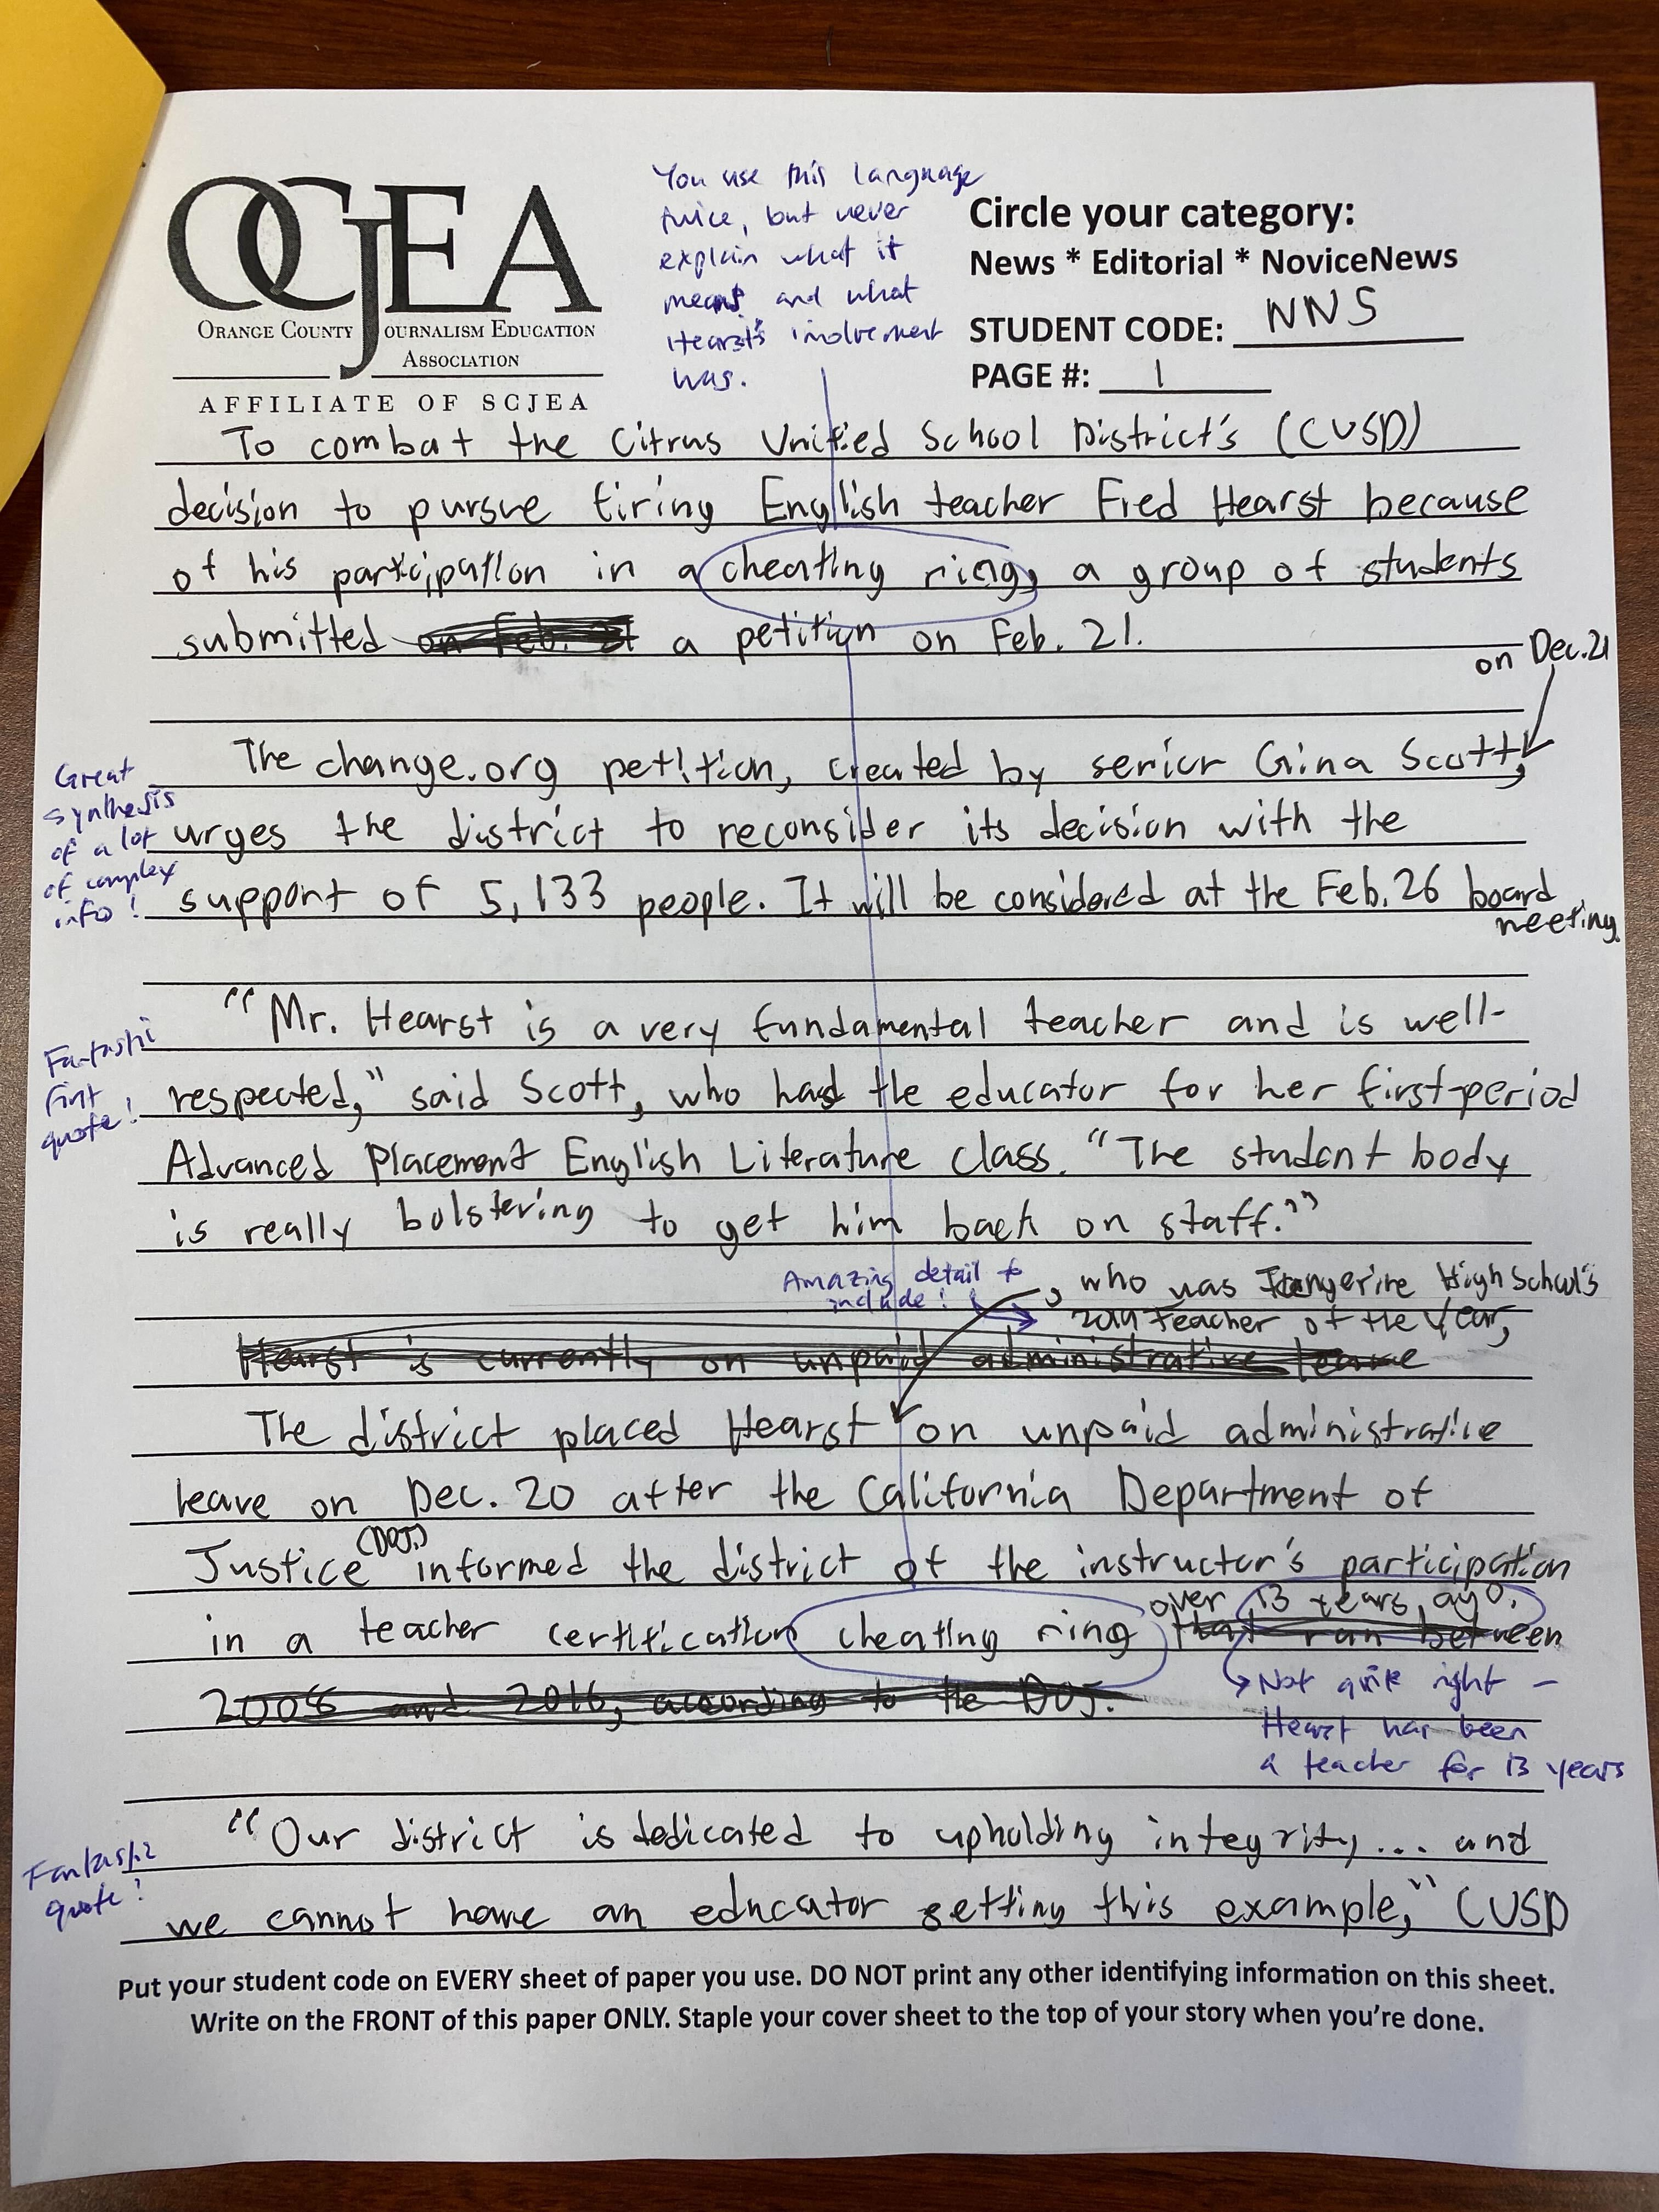 OCJEA
ORANGE COUNTY JOURNALISM EDUCATION
ASSOCIATION
AFFILIATE OF SCJEA
You use this language
twice, but never
explain what it
means and what
Hearst's involvement
was.
Circle your category:
News * Editorial * NoviceNews
STUDENT CODE: NNS
PAGE #: 1
To combat the Citrus Unified School District's (CUSD)
decision to pursue firing English teacher Fred Hearst because
of his participation in a cheating ring, a group of students
submitted on Feb. 21 a petition on Feb. 21.
on Dec. 21
The change.org petition, created by senior Gina Scott,
urges the district to reconsider its decision with the
support of 5,133 people. It will be considered at the Feb. 26 board
meeting.
Great
synthesis
of a lot
of complex
info!
"Mr. Hearst is a very fundamental teacher and is well-
respected," said Scott, who had the educator for her first-period
Advanced Placement English Literature class. "The student body
is really bolstering to get him back on staff."
Fantastic
first
quote!
Amazing detail to
include!
, who was Tangerine High School's
2019 Teacher of the Year,
Hearst is currently on unpaid administrative leave
The district placed Hearst on unpaid administrative
leave on Dec. 20 after the California Department of
Justice (DOJ) informed the district of the instructor's participation
in a teacher certification cheating ring over 13 years ago.
that ran between
2008 and 2016, according to the DOJ.
Not quite right –
Hearst has been
a teacher for 13 years
"Our district is dedicated to upholding integrity... and
we cannot have an educator setting this example," CUSD
Fantastic
quote!
Put your student code on EVERY sheet of paper you use. DO NOT print any other identifying information on this sheet.
Write on the FRONT of this paper ONLY. Staple your cover sheet to the top of your story when you're done.